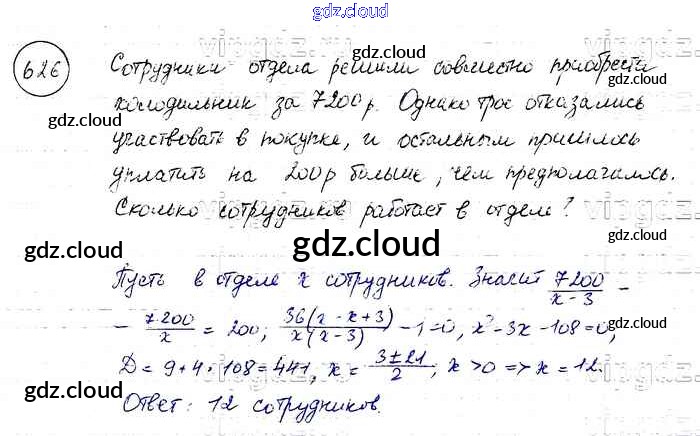 gdz.cloud
626
Сотрудники отдела решили совместно приобрести
холодильник за 7200р. Однако трое отказались
участвовать в покупке, и остальным пришлось
уплатить на 200р больше, чем предполагалось.
Сколько сотрудников работает в отделе?
gdz.cloud
Пусть в отделе x сотрудников. Значит 7200/(x-3) -
- 7200/x = 200; 36(x-x+3)/(x(x-3)) - 1=0, x²-3x-108=0,
D = 9+4·108=441, x = (3±21)/2; x>0 => x = 12.
Ответ: 12 сотрудников.